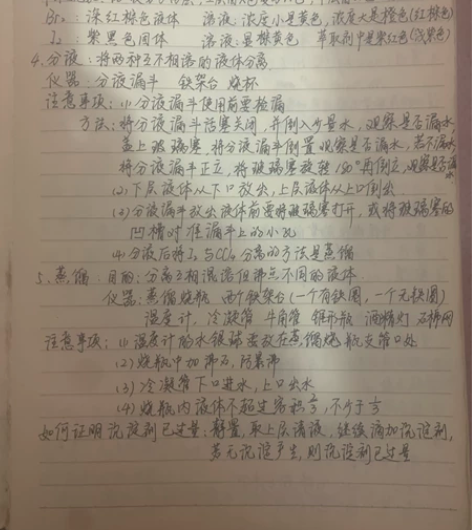 Br₂：深红棕色液体 溶液：浓度小是黄色，浓度大是橙色(红棕色)
I₂：紫黑色固体 溶液：显棕黄色 萃取剂中是紫红色(浅紫色)
4.分液：将两种互不相溶的液体分离
仪器：分液漏斗 铁架台 烧杯
注意事项：(1)分液漏斗使用前要检漏
方法：将分液漏斗活塞关闭，并倒入少量水，观察是否漏水，
盖上玻璃塞，将分液漏斗倒置观察是否漏水，若不漏水，
将分液漏斗正立，将玻璃塞旋转180°再倒立，观察是否漏水
(2)下层液体从下口放出，上层液体从上口倒出
(3)分液漏斗放出液体前要将玻璃塞打开，或将玻璃塞的
凹槽对准漏斗上的小孔
(4)分液后将I₂与CCl₄分离的方法是蒸馏
5.蒸馏：目的：分离互相混溶但沸点不同的液体
仪器：蒸馏烧瓶 两个铁架台(一个有铁圈，一个无铁圈)
温度计，冷凝管 牛角管 锥形瓶 酒精灯 石棉网
注意事项：(1)温度计的水银球要放在蒸馏烧瓶支管口处
(2)烧瓶中加沸石，防暴沸
(3)冷凝管下口进水，上口出水
(4)烧瓶内液体不超过容积，不少于⅓
如何证明沉淀剂已过量：静置，取上层清液，继续滴加沉淀剂，
若无沉淀产生，则沉淀剂已过量